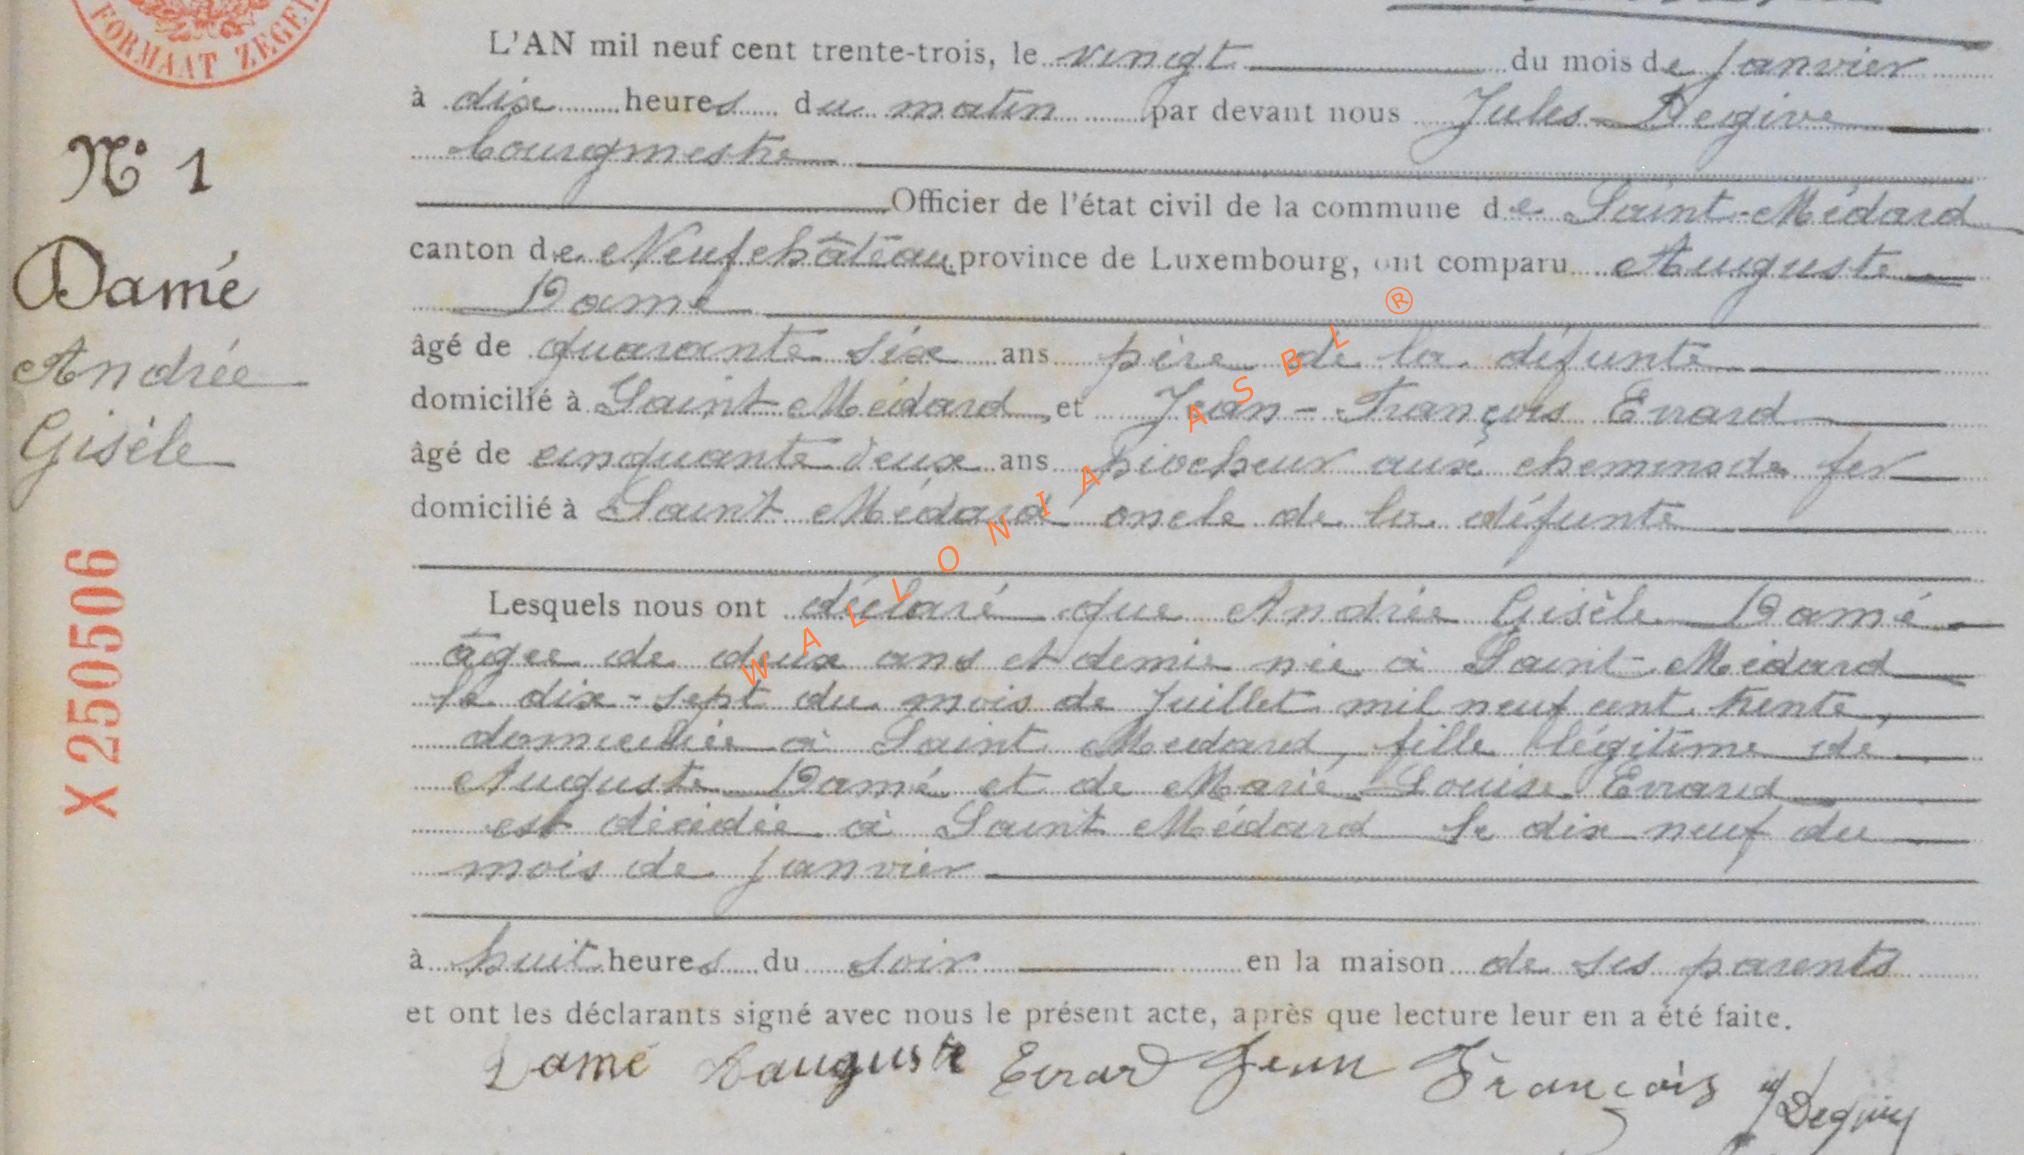 FORMAAT ZEGEL
L'AN mil neuf cent trente-trois, le vingt du mois de Janvier
à dix heures du matin par devant nous Jules Degive
bourgmestre
Officier de l'état civil de la commune de Saint-Médard
canton de Neufchâteau province de Luxembourg, ont comparu Auguste
Damé
âgé de quarante six ans père de la défunte
domicilié à Saint Médard et Jean-François Errard
âgé de cinquante deux ans piocheur aux chemins de fer
domicilié à Saint Médard oncle de la défunte
Lesquels nous ont déclaré que Andrée Gisèle Damé
âgée de deux ans et demie née à Saint-Médard
le dix-sept du mois de Juillet mil neuf cent trente,
domiciliée à Saint Médard, fille légitime de
Auguste Damé et de Marie Louise Errard
est décédée à Saint Médard le dix neuf du
mois de Janvier
à huit heures du soir en la maison de ses parents
et ont les déclarants signé avec nous le présent acte, après que lecture leur en a été faite.
Damé Auguste Errard Jean François Degive
N° 1
Damé
Andrée
Gisèle
X 250506
WALLONIA ASBL ®